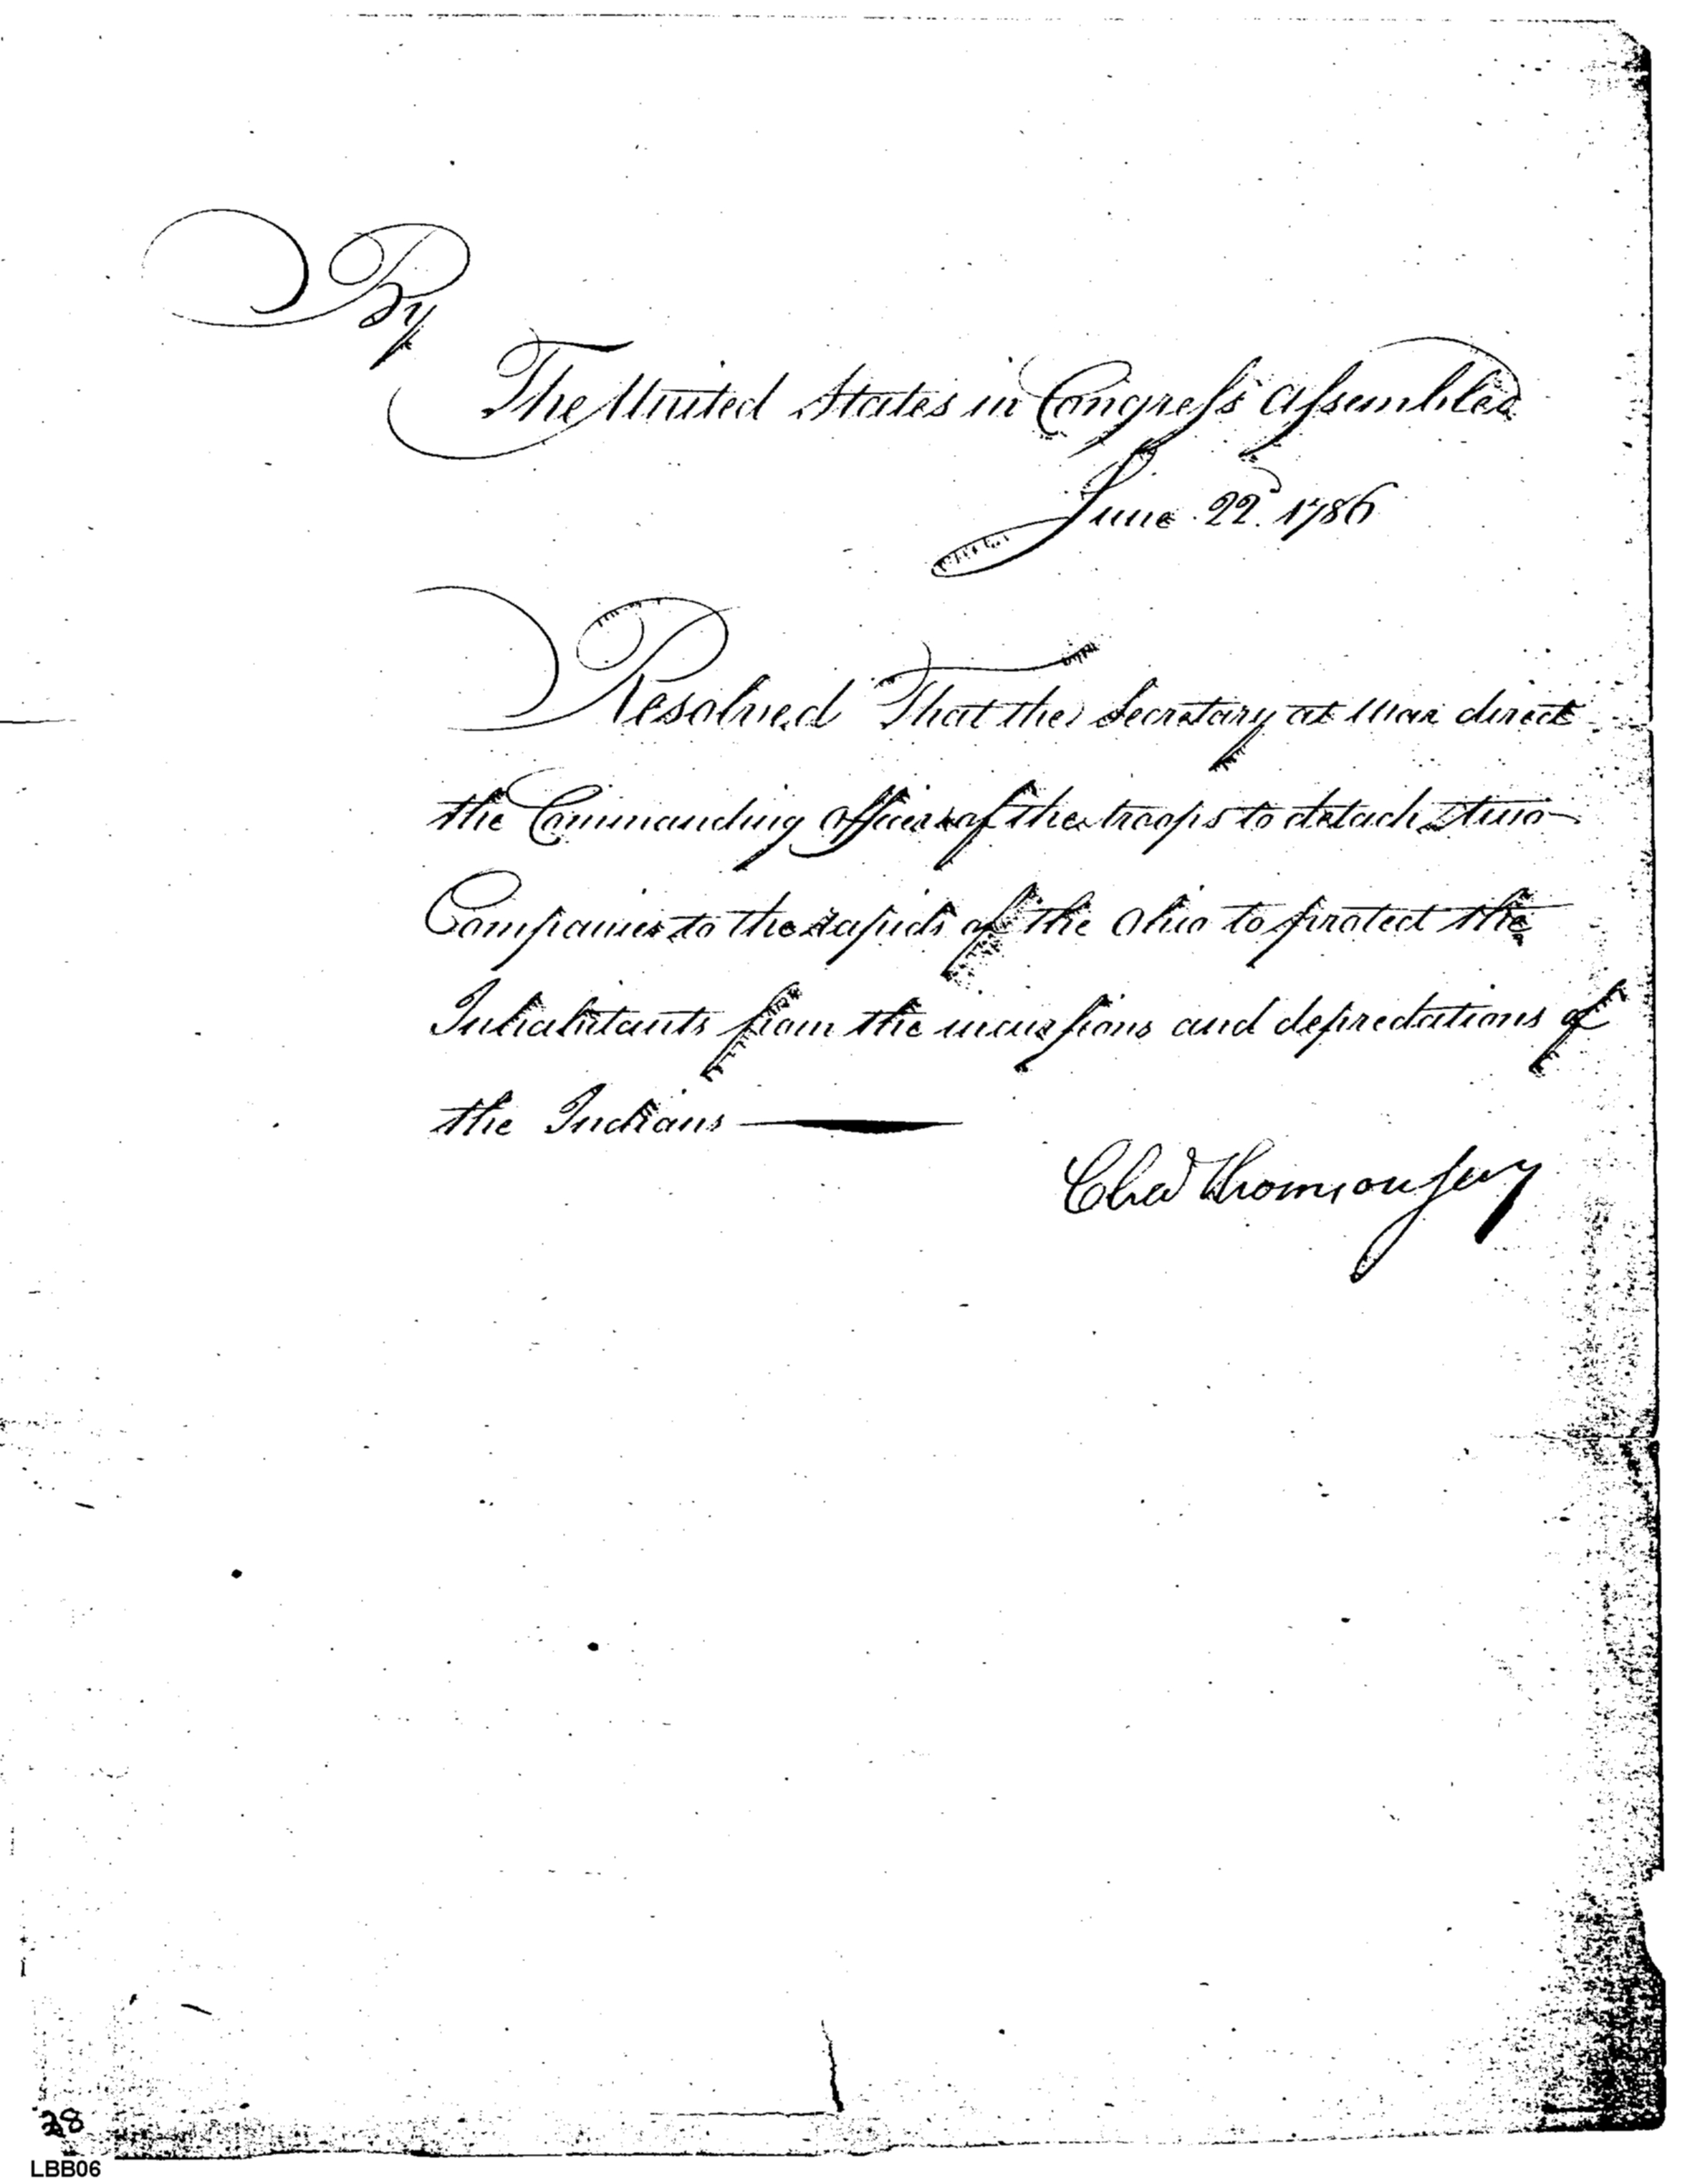 By
The United States in Congress Assembled
June 22d. 1786
Resolved That the Secretary at War direct
the Commanding Officer of the troops to detach two
Companies to the rapids of the Ohio to protect the
Inhabitants from the incursions and depredations of
the Indians
Chas Thomson Secy
28
LBB06